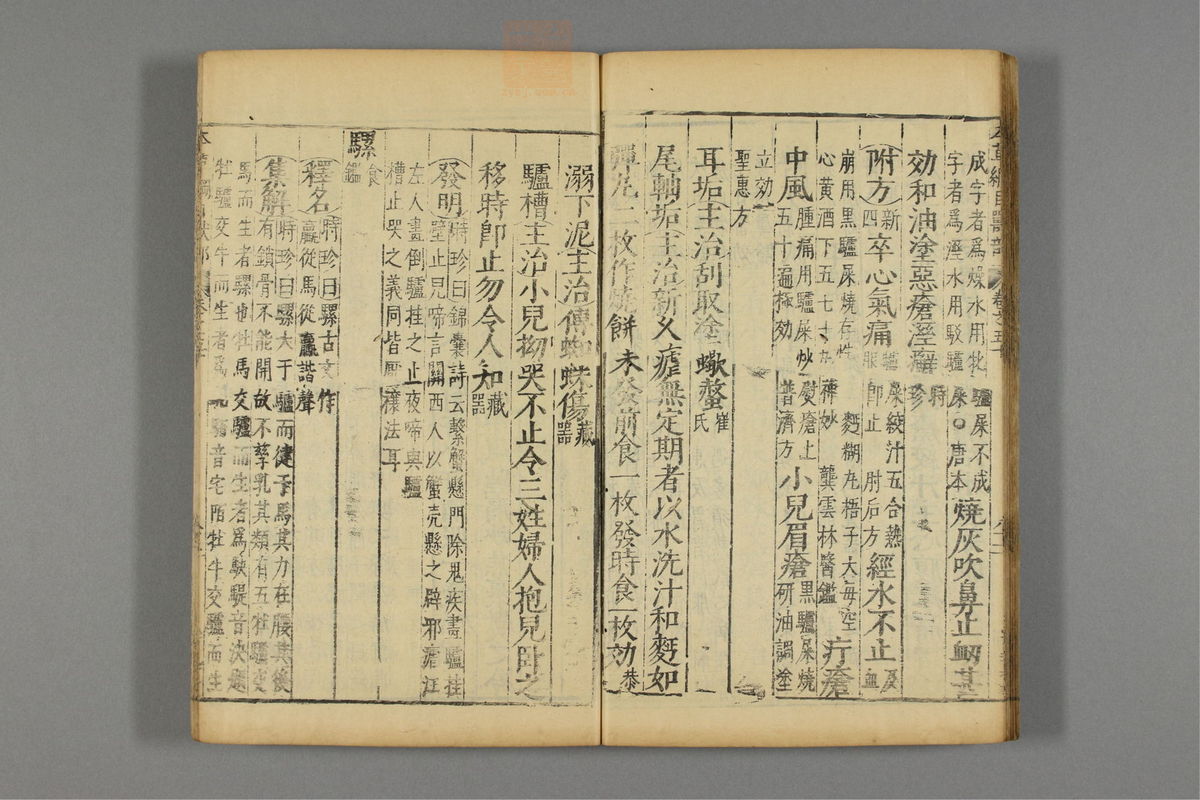 成字者為燥水用牝驢屎不成
字者為溼水用駁驢屎○唐本燒灰吹鼻止衄甚
効和油塗惡瘡溼癬時珍
附方新四卒心氣痛驢屎絞汁五合熱服即止肘后方經水不止及血
崩用黑驢屎燒存性麪糊丸梧子大每空
心黃酒下五七十丸龔雲林醫鑑疔瘡
中風腫痛用驢屎炒熨瘡上五十遍極効普濟方小兒眉瘡黑驢屎燒研油調塗
立効
聖惠方
耳垢主治刮取塗蠍螫崔氏
尾軸垢主治新久瘧無定期者以水洗汁和麪如
彈丸二枚作燒餅未發前食一枚發時食一枚効恭
溺下泥主治傅蜘蛛傷藏器
驢槽主治小兒拗哭不止令三姓婦人抱兒臥之
移時即止勿令人知藏器
發明時珍曰錦囊詩云繫蟹懸門除鬼疾畫驢挂
壁止兒啼言關西人以蟹壳懸之辟邪瘧江
左人畫倒驢挂之止夜啼與驢
槽止哭之義同皆厭禳法耳
騾食鑑
釋名時珍曰騾古文作
驘從馬從𦝠諧聲
集解時珍曰騾大于驢而健于馬其力在腰其後
有鎖骨不能開故不孳乳其類有五牡驢交
馬而生者騾也牡馬交驢而生者為駃騠音決題
牡驢交牛而生者為音宅陌牡牛交驢而生